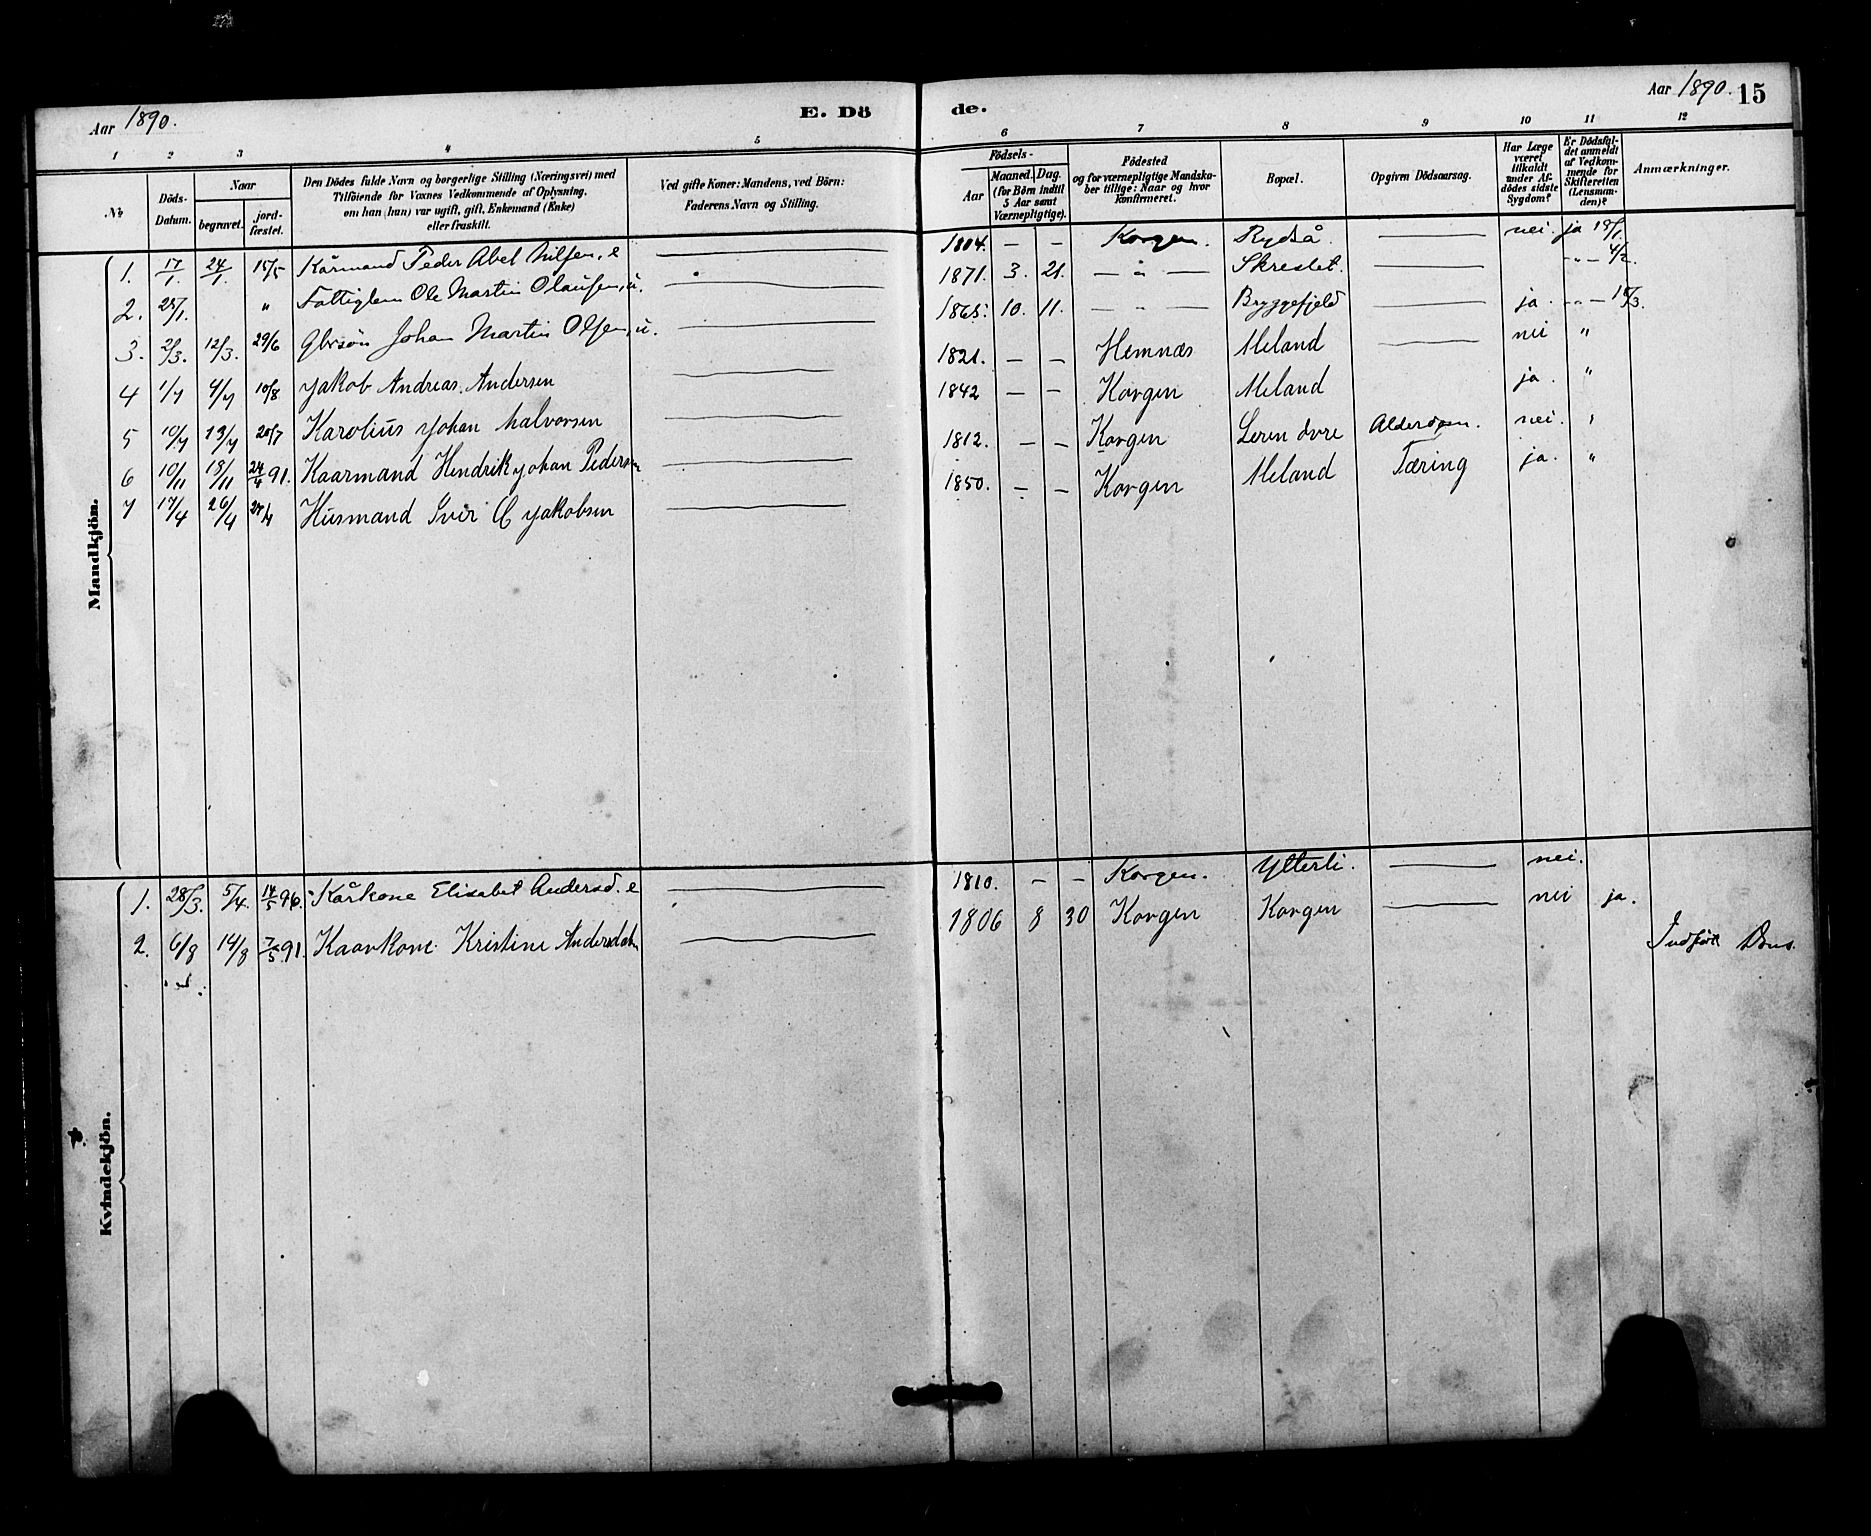 Aar 1890. E. Dö
de. Aar 1890. 15
1 2 3 4 5
6 7 8 9 10 11 12
No
Döds-Datum.
Naar
begravet.
jord-fæstet.
Den Dödes fulde Navn og borgerlige Stilling (Næringsvei) med
Tilföiende for Voxnes Vedkommende af Oplysning,
om han (hun) var ugift, gift, Enkemand (Enke)
eller fraskilt.
Ved gifte Koner: Mandens, ved Börn:
Faderens Navn og Stilling.
Födsels-
Aar
Maaned. Dag.
(for Börn indtil
5 Aar samt
Værnepligtige).
Födested
og for værnepligtige Mandska-
ber tillige: Naar og hvor
konfirmeret.
Bopæl.
Opgiven Dödsaarsag.
Har Læge
været
tilkaldt
under Af-
dödes sidste
Sygdom?
Er Dödsfal-
det anmeldt
af Vedkom-
mende for
Skifteretten
(Lensman-
den)?
Anmærkninger.
Mandkjön.
1. 17/1. 24/1. 15/5 Kårmand Peder Abel Nilsen, e — 1804. — — Korgen. Rydså. — nei. ja 18/1.
2. 28/1. " Fattiglem Ole Martin Olausen, u. — 1871. 3. 21. — " — Skrestet. — - " - 4/2.
3. 2/3. 12/3. 29/6 Gbrsön Johan Martin Olsen, u. — 1865. 10. 11. — " — Bryggefjeld — ja. - " - 18/3.
4 1/7 4/7 10/8 Jakob Andreas Andersen — 1821. — — Hemnæs Meland — nei "
5 10/7 13/7 20/7 Karolius Johan Halvorsen — 1842 — — Korgen Meland ja. "
6 10/11 18/11 24/4 91. Kaarmand Hendrik Johan Pedersen — 1812. — — Korgen Leren övre Alderdom. nei. "
7 17/4 26/4 27/4 Husmand Iver C Jakobsen — 1850. — — Korgen Meland Tæring ja. "
Kvindekjön.
1. 28/3. 5/4. 14/5 96. Kårkone Elisabet Andersd. e — 1810. — — Korgen. Ytterli. — nei.
2. 6/8 14/8 7/5 91. Kaarkone Kristine Andersdatr — 1806 8 30 Korgen Korgen — nei ja.
Indfört